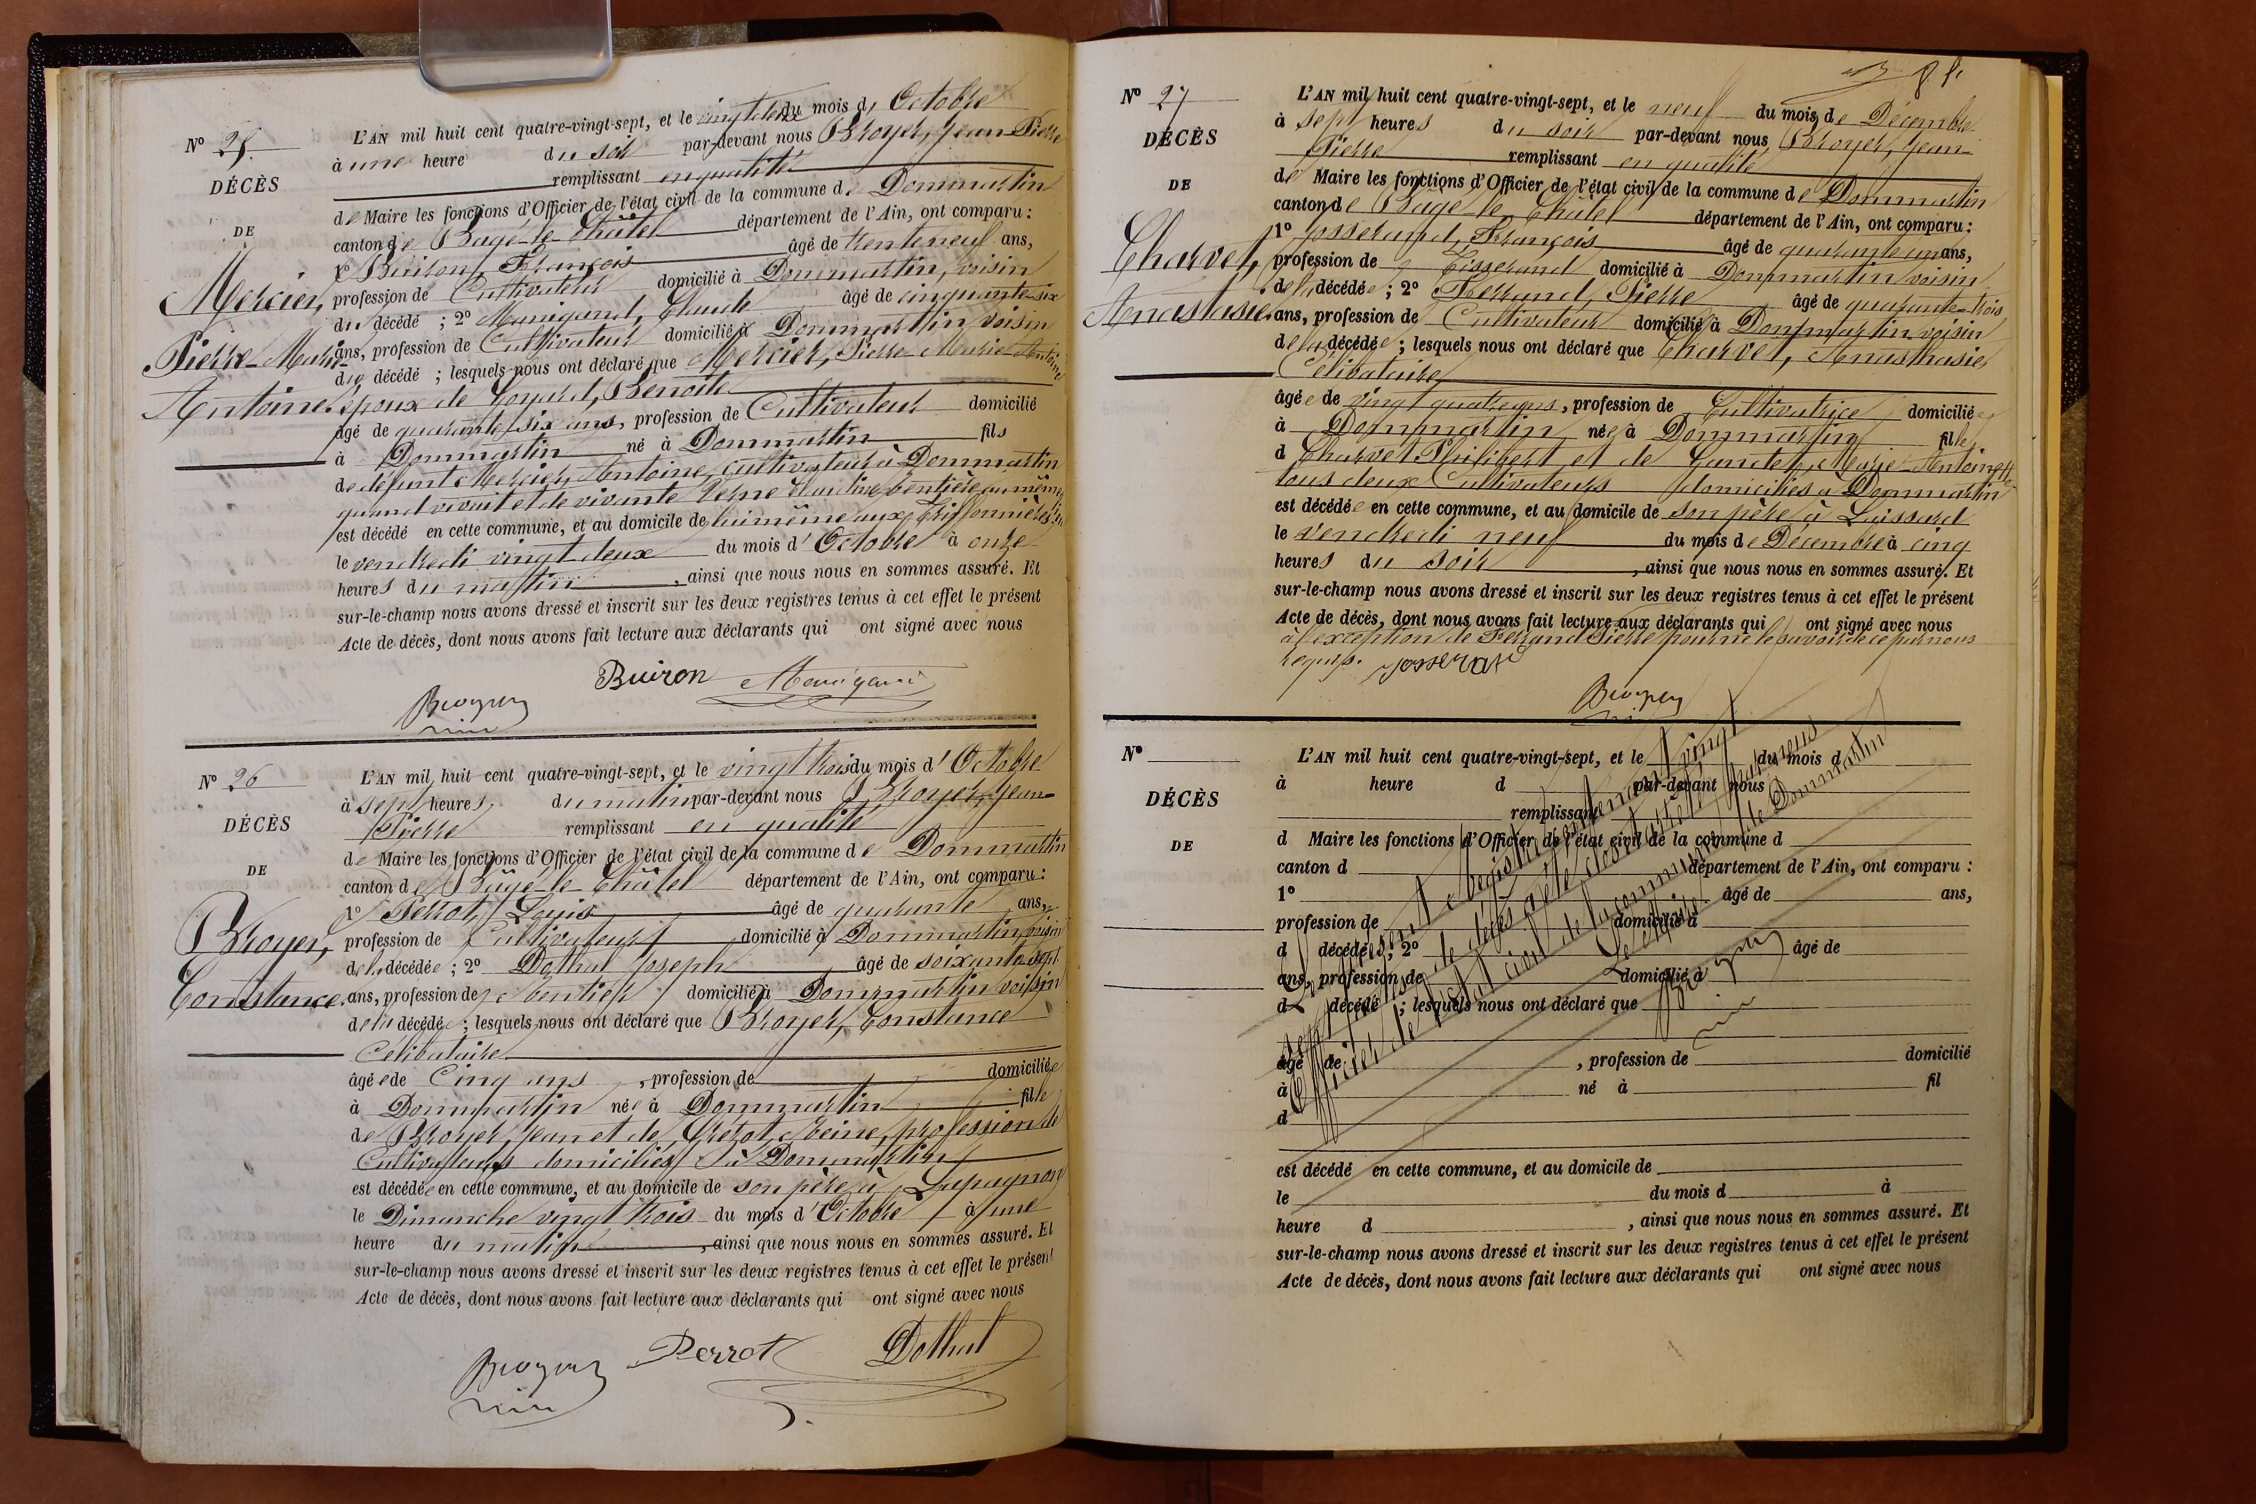 N° 25
DÉCÈS
DE
Mercier,
Pierre-Marie-
Antoine.
L'AN mil huit cent quatre-vingt-sept, et le vingt deux du mois d'Octobre
à une heure du soir par-devant nous Broyer, Jean Pierre
remplissant en qualité
de Maire les fonctions d'Officier de l'état civil de la commune de Dommartin
canton de Bagé-le-Châtel département de l'Ain, ont comparu :
1° Buiron, François âgé de trente neuf ans,
profession de Cultivateur domicilié à Dommartin, voisin
du décédé ; 2° Manigand, Claude âgé de cinquante-six
ans, profession de Cultivateur domicilié à Dommartin voisin
du décédé ; lesquels nous ont déclaré que Mercier, Pierre-Marie-Antoine
époux de Goyard, Benoite
âgé de quarante six ans, profession de Cultivateur domicilié
à Dommartin né à Dommartin fils
de défunt Mercier, Antoine, Cultivateur à Dommartin
quand vivait et de vivante rentière au même
est décédé en cette commune, et au domicile de lui même aux
le vendredi vingt deux du mois d'Octobre à onze
heures du matin, ainsi que nous nous en sommes assuré. Et
sur-le-champ nous avons dressé et inscrit sur les deux registres tenus à cet effet le présent
Acte de décès, dont nous avons fait lecture aux déclarants qui ont signé avec nous
Buiron Manigand
Broyer
N° 26
DÉCÈS
DE
Broyer,
Constance.
L'AN mil huit cent quatre-vingt-sept, et le vingt trois du mois d'Octobre
à sept heures du matin par-devant nous Broyer, Jean-
Pierre remplissant en qualité
de Maire les fonctions d'Officier de l'état civil de la commune de Dommartin
canton de Bâgé-le-Châtel département de l'Ain, ont comparu :
1° Perrot, Louis âgé de quarante ans,
profession de Cultivateur domicilié à Dommartin, voisin
de la décédée ; 2° Dothal Joseph âgé de soixante-sept
ans, profession de Rentier domicilié à Dommartin voisin
de la décédée ; lesquels nous ont déclaré que Broyer, Constance
Célibataire
âgée de Cinq ans, profession de domiciliée
à Dommartin née à Dommartin fille
de Broyer, Jean et de Reine, profession de
Cultivateurs domiciliés à Dommartin
est décédée en cette commune, et au domicile de son père à Lapagnon
le Dimanche vingt trois du mois d'Octobre à une
heure du matin, ainsi que nous nous en sommes assuré. Et
sur-le-champ nous avons dressé et inscrit sur les deux registres tenus à cet effet le présent
Acte de décès, dont nous avons fait lecture aux déclarants qui ont signé avec nous
Broyer Perrot Dothal
N° 27
DÉCÈS
DE
Charvet,
Anastasie.
L'AN mil huit cent quatre-vingt-sept, et le neuf du mois de Décembre
à sept heures du soir par-devant nous Broyer, Jean-
Pierre remplissant en qualité
de Maire les fonctions d'Officier de l'état civil de la commune de Dommartin
canton de Bâgé-le-Châtel département de l'Ain, ont comparu :
1° Josserand, François âgé de quarante un ans,
profession de Tisserand domicilié à Dommartin voisin
de la décédée ; 2° Ferrand, Pierre âgé de quarante-trois
ans, profession de Cultivateur domicilié à Dommartin voisin
de la décédée ; lesquels nous ont déclaré que Charvet, Anasthasie
Célibataire
âgée de vingt quatre ans, profession de Cultivatrice domiciliée
à Dommartin née à Dommartin fille
d Charvet Philibert et de Marie-Antoinette
tous deux Cultivateurs domiciliés à Dommartin
est décédée en cette commune, et au domicile de son père à Luissard
le vendredi neuf du mois de Décembre à cinq
heures du soir, ainsi que nous nous en sommes assuré. Et
sur-le-champ nous avons dressé et inscrit sur les deux registres tenus à cet effet le présent
Acte de décès, dont nous avons fait lecture aux déclarants qui ont signé avec nous
à l'exception de Ferrand Pierre pour ne le savoir de ce par nous
requis. Josserand
Broyer
N°
DÉCÈS
DE
L'AN mil huit cent quatre-vingt-sept, et le du mois d
à heure d par-devant nous
remplissant
d Maire les fonctions d'Officier de l'état civil de la commune d
canton d département de l'Ain, ont comparu :
1° âgé de ans,
profession de domicilié à
d décédé ; 2° âgé de
ans, profession de domicilié à
d décédé ; lesquels nous ont déclaré que
âgé de , profession de domicilié
à né à fil
d
est décédé en cette commune, et au domicile de
le du mois d à
heure d , ainsi que nous nous en sommes assuré. Et
sur-le-champ nous avons dressé et inscrit sur les deux registres tenus à cet effet le présent
Acte de décès, dont nous avons fait lecture aux déclarants qui ont signé avec nous
Le présent Registre contenant vingt
sept actes de décès a été clos et arrêté par nous
Officier de l'état civil de la commune de Dommartin
Le Maire
Broyer